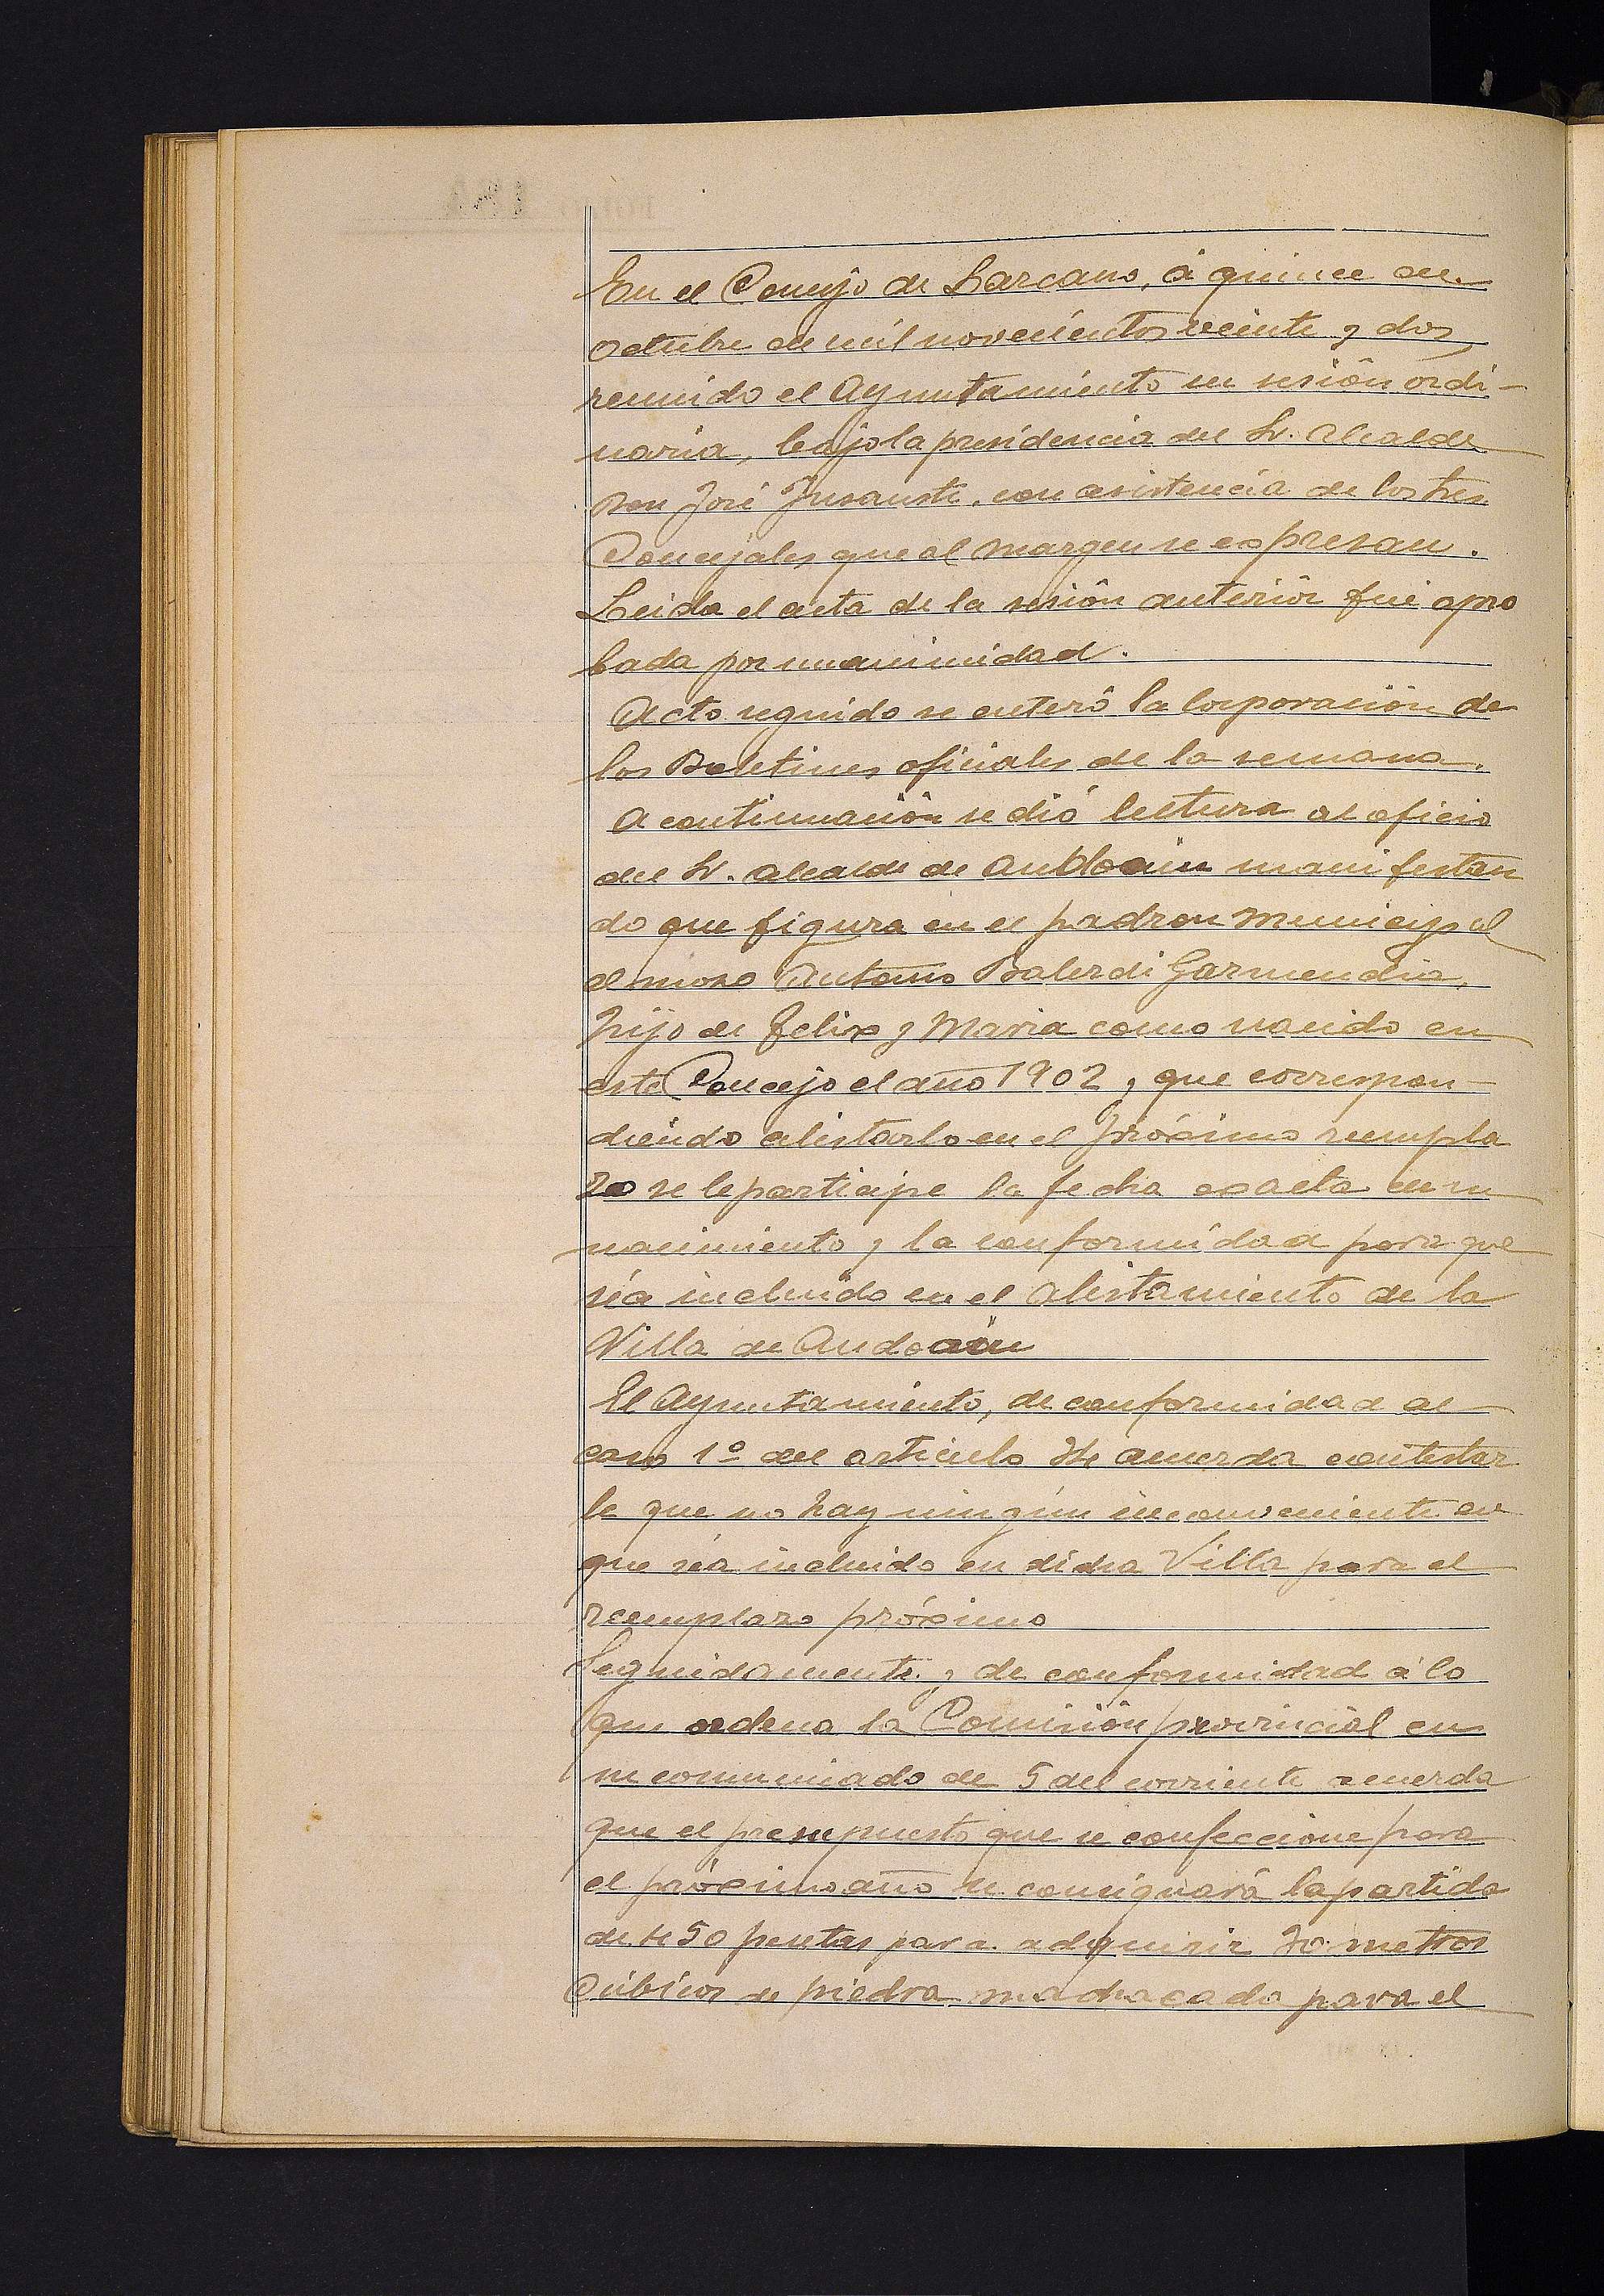 En el Concejo de Larcano, á quince de
octubre de mil novecientos veinte y dos
reunido el Ayuntamiento en sesión ordi-
naria, bajo la presidencia del Sr. Alcalde
Don José Insausti, con asistencia de los tres
Concejales que al margen se expresan.
Leida el acta de la sesión anteriór fué apro
bada por unanimidad.
Acto seguido se enteró la Corporación de
los Boletines oficiales de la semana.
A continuación se dió lectura al oficio
del Sr. alcalde de Andoain manifestan
do que figura en el padron Municipal
el mozo Antonio Balerdi Garmendia,
hijo de Felix y Maria como nacido en
este Concejo el año 1902, que correspon-
diendo alistarlo en el próximo reempla
zo se le participe la fecha exacta en su
nacimiento y la conformidad para que
séa incluido en el alistamiento de la
Villa de Andoain
El Ayuntamiento, de conformidad al
caso 1º del articulo 34 acuerda contestar
le que no hay ningún inconveniente en
que séa incluido en dicha Villa para el
reemplazo próximo
Seguidamente y de conformidad á lo
que ordena la Comisión provincial en
su comunicado de 5 del corriente acuerda
que el presupuesto que se confeccione para
el próximo año se consignará la partida
de 450 pesetas para adquirir 30 metros
Cúbicos de piedra machacada para el